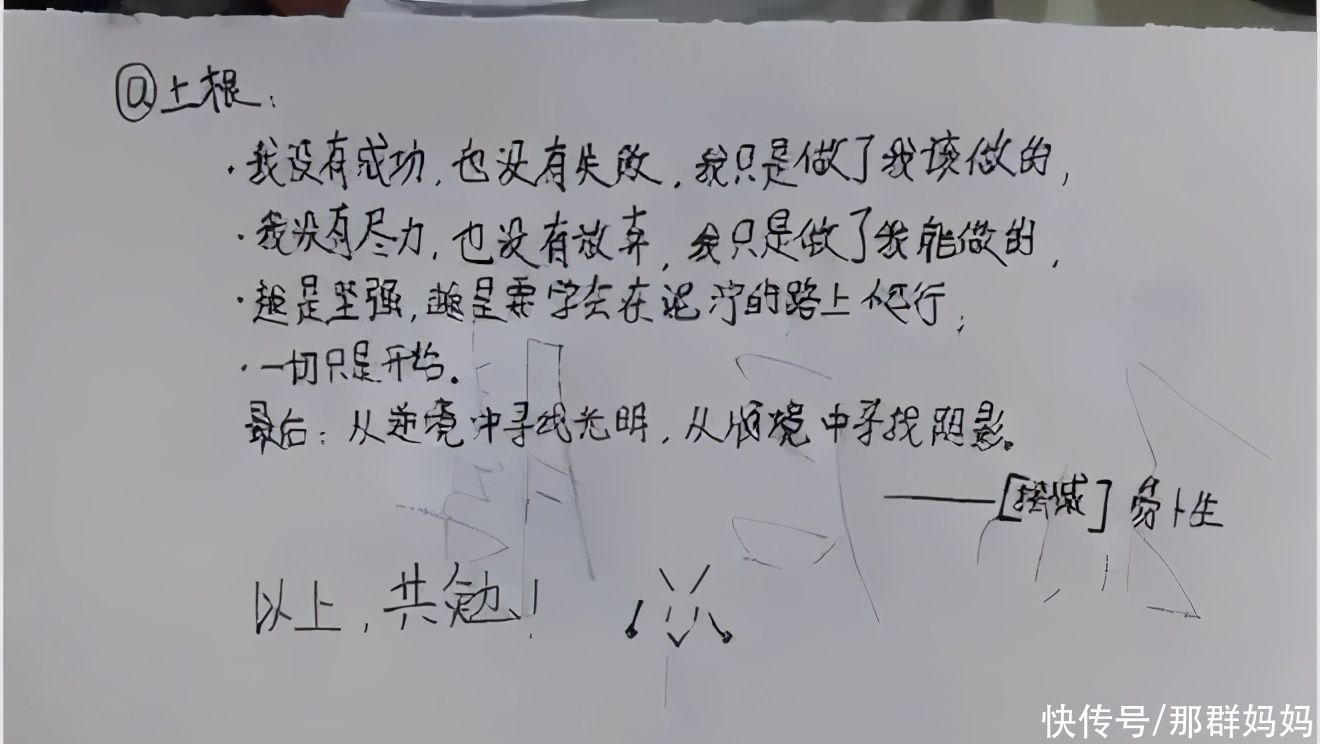 @上根:
·我没有成功,也没有失败,我只是做了我该做的,
·我没有尽力,也没有放弃,我只是做了我能做的,
·越是坚强,越是要学会在泥泞的路上爬行;
·一切只是开始。
最后:从逆境中寻找光明,从顺境中寻找阴影。
——[挪威] 易卜生
以上,共勉!
快传号/那群妈妈